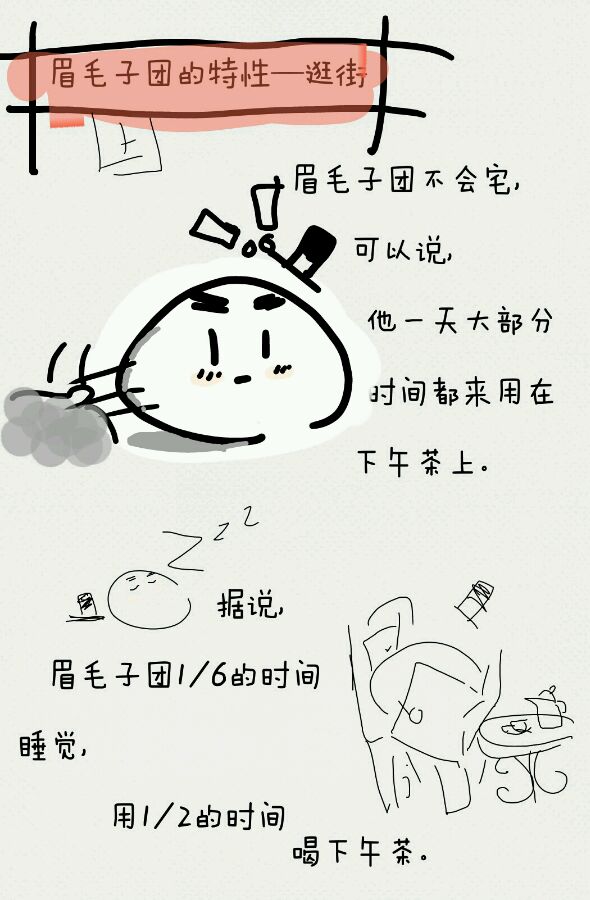 眉毛子团的特性—逛街
眉毛子团不会宅,
可以说,
他一天大部分
时间都来用在
下午茶上。
zzz
据说,
眉毛子团1/6的时间
睡觉,
用1/2的时间
喝下午茶。